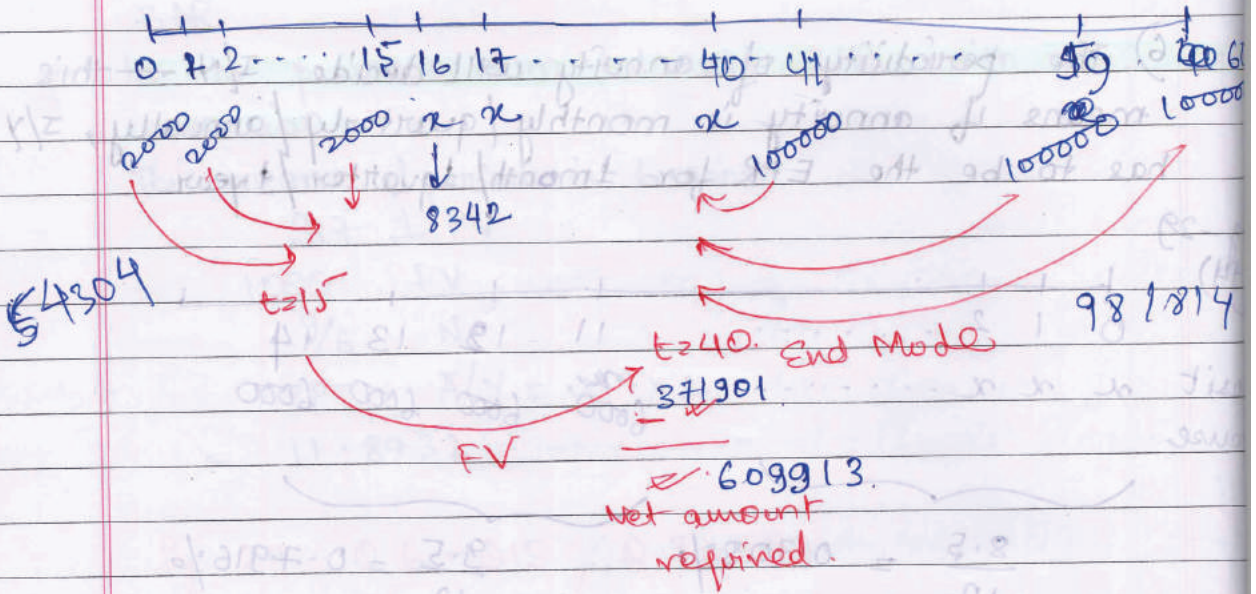 0 1 2 .... 15 16 17 ...... 40 41 59 60
2000 2000 2000 x x x 100000 100000 10000
8342
54304
t=15
981814
t=40. End Mode
- 371901
FV
609913.
Net amount
required.